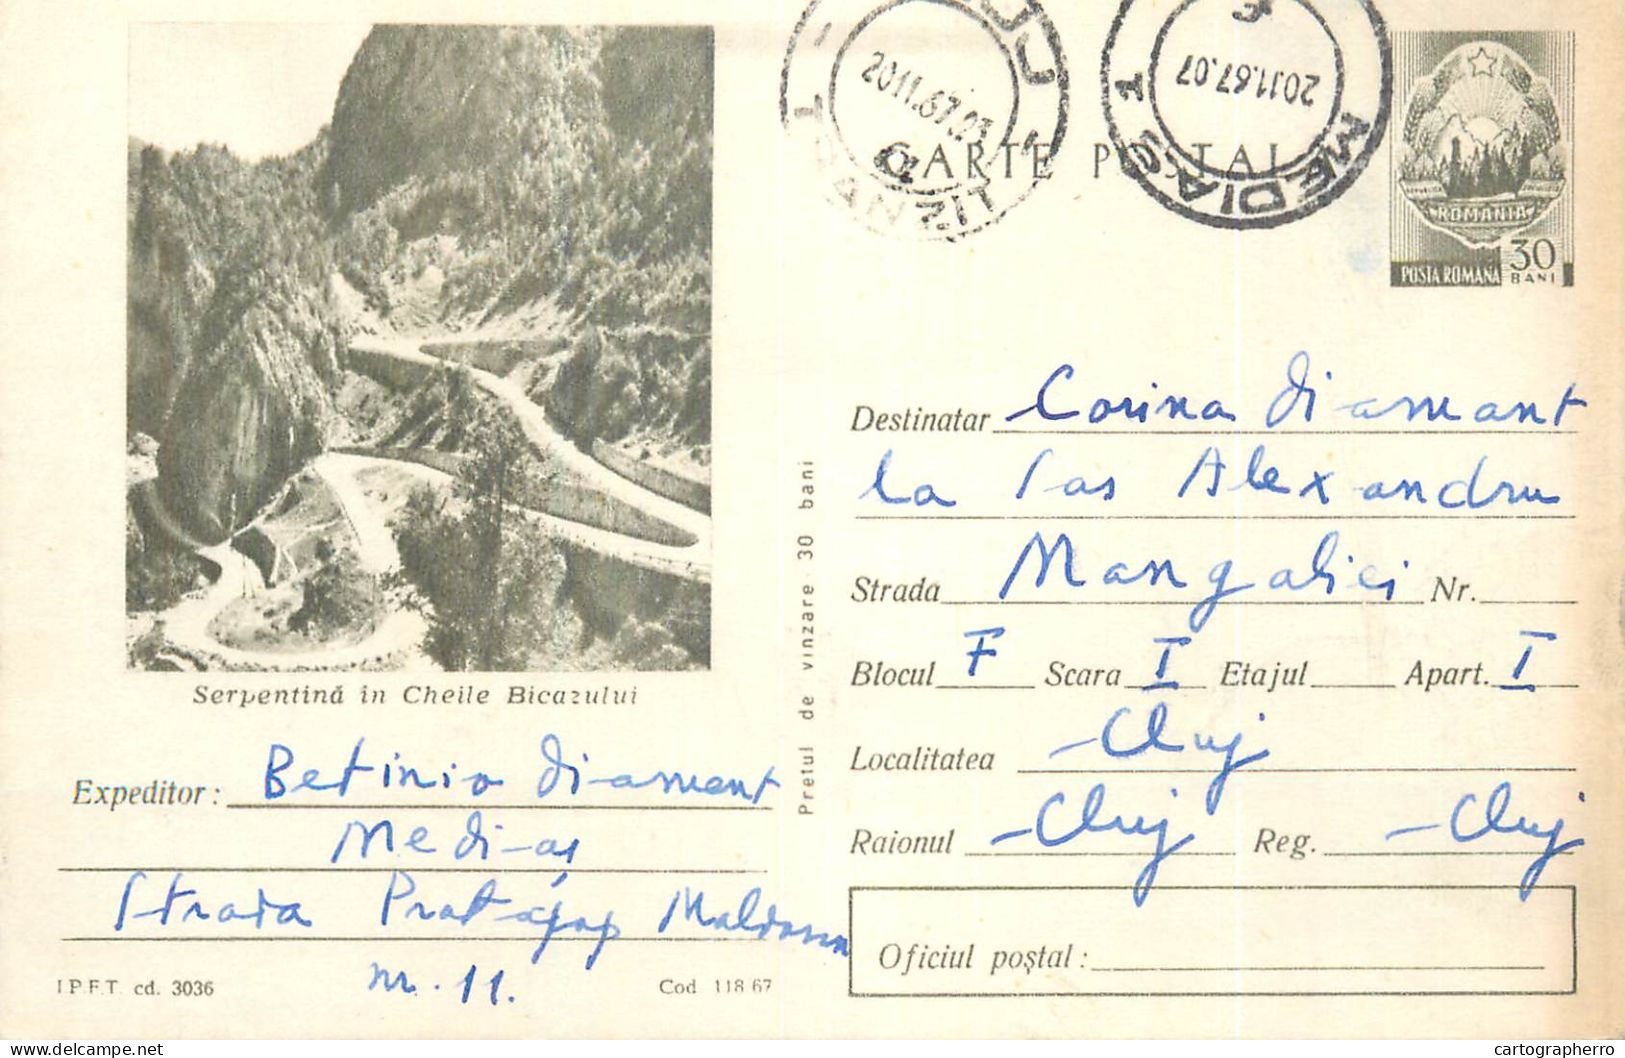 CARTE POSTAL
CLUJ 1
20.11.67.03
TRANZIT
MEDIAȘ 1
20.11.67.07
3
ROMANIA
POSTA ROMANA
30
BANI
Serpentină în Cheile Bicazului
Destinatar Corina Diamant
la Alexandru
Strada Mangaliei Nr.
Blocul F Scara I Etajul Apart. I
Localitatea Cluj
Raionul Cluj Reg. Cluj
Oficiul poștal :
Prețul de vinzare 30 bani
Expeditor : Diamant
Mediaș
Strada Moldovan
nr. 11.
I.P.F.T. cd. 3036
Cod 118 67
delcampe.net
cartographerro